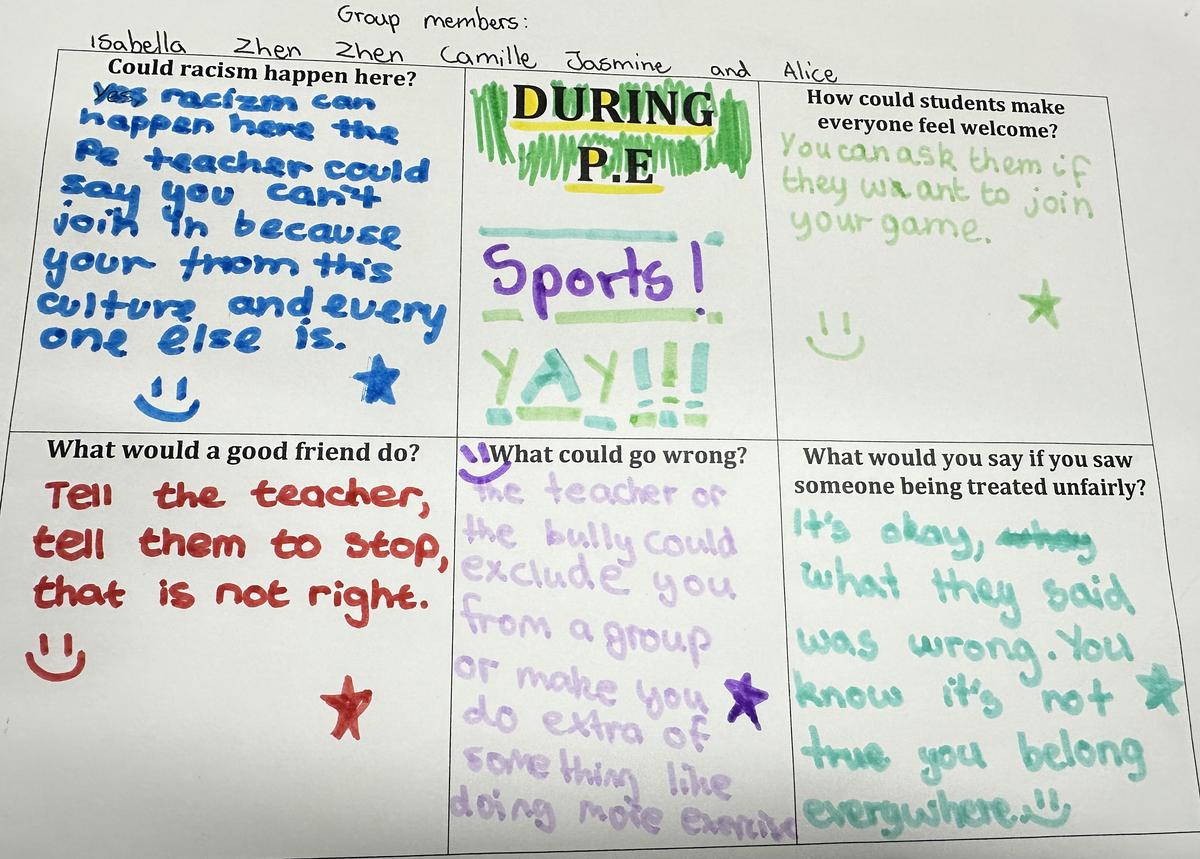 Group members:
Isabella Zhen Zhen Camille Jasmine and Alice
Could racism happen here?
Yes racizm can
happen here the
Pe teacher could
say you can't
join in because
your from this
culture and every
one else is.
DURING
P.E
Sports!
YAY!!!
How could students make
everyone feel welcome?
You can ask them if
they want to join
your game.
What would a good friend do?
Tell the teacher,
tell them to stop,
that is not right.
What could go wrong?
the teacher or
the bully could
exclude you
from a group
or make you
do extra of
something like
doing more exercise
What would you say if you saw
someone being treated unfairly?
It's okay,
what they said
was wrong. You
know it's not
true you belong
everywhere.